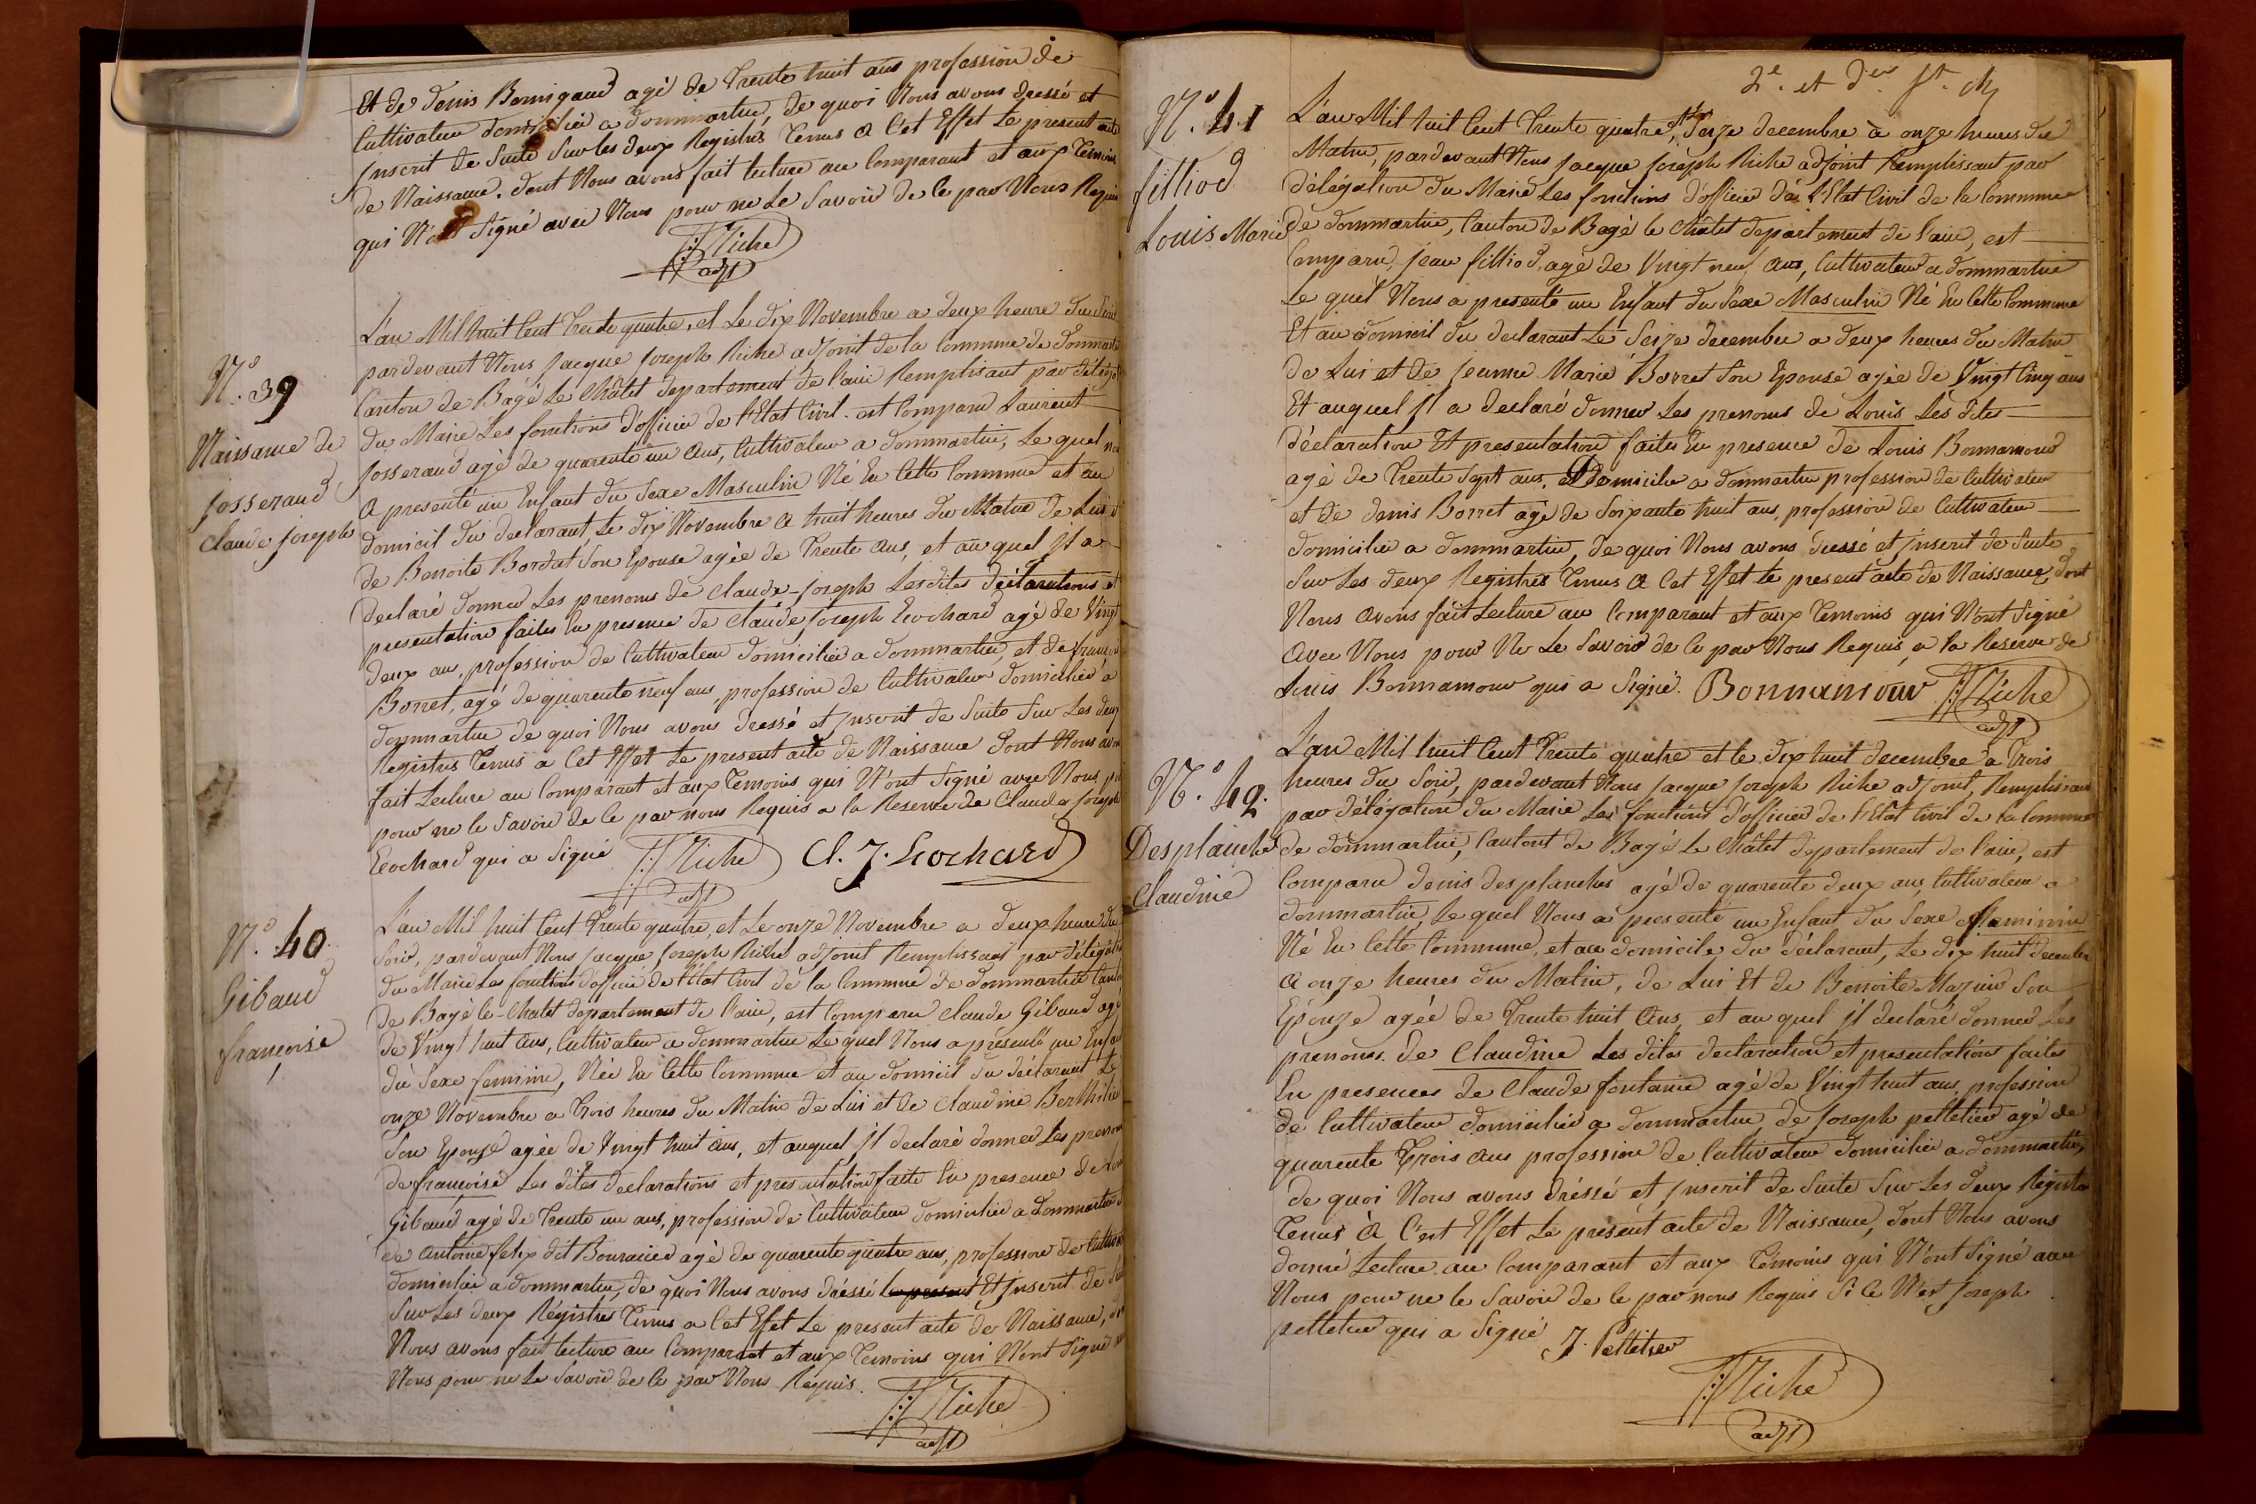 Et de denis Bonnigaud agé de Trente huit ans profession de
Cultivateur domicilié a dommartin, de quoi Nous avons dressé et
Jnscrit de Suite Sur les deux Registres Tenus a Cet Effet Le present acte
de Naissance. dont Nous avons fait lecture au Comparant et aux Temoins
qui N'ont Signé avec Nous pour ne Le Savoir de Ce par Nous Requis
J:J Riche
adjt
N.° 39
Naissance de
Josserand
Claude Joseph
L'an Mil huit Cent Trente quatre, et Le dix Novembre a deux heure du Soir
pardevant Nous Jacque Joseph Riche adjoint de la Commune de Dommartin
Canton de Bagé Le Châtel departement de l'ain Remplisant par délégation
du Maire Les fonctions d'officier de l'Etat Civil. est Comparu Laurent
Josserand agé de quarente un Ans, Cultivateur a dommartin, Le quel nous
a presenté un Enfant du Sexe Masculin Né En Cette Commune et au
domicil du declarant, Le dix Novembre a huit heures du Matin de Lui et
de Benoite Bordat Son Epouse agée de Trente Ans, et au quel Jl a
declaré donner Les prenoms de Claude-Joseph Les dites déclarations et
presentation faites En presence de Claude Joseph Ecochard agé de Vingt
deux ans, profession de Cultivateur domicilié a dommartin, et de françois
Borret, agé de quarente neuf ans, profession de Cultivateur domicilié a
dommartin de quoi Nous avons dressé et Jnscrit de Suite Sur Les deux
Registres Tenus a Cet Effet Le present acte de Naissance dont Nous avons
fait Lecture au Comparant et aux Temoins qui N'ont Signé avec Nous,
pour ne le Savoir de Ce par nous Requis a la Reserve de Claude Joseph
Ecochard qui a Signé J:J Riche Cl. J. Ecochard
adjt
N.° 40
Gibaud
françoise
L'an Mil huit Cent Trente quatre, et Le onze Novembre a deux heure du
Soir, pardevant Nous Jacque Joseph Riche adjoint Remplissant par délégation
du Maire Les fonctions d'officier de l'Etat Civil de la Commune de dommartin Canton
de Bagé le-Chatel departement de l'ain, est Comparu Claude Gibaud agé
de Vingt huit ans, Cultivateur a dommartin Le quel Nous a présenté un Enfant
du Sexe feminin, Née En Cette Commune et au domicil du déclarant Le
onze Novembre a Trois heures du Matin de Lui et de Claudine Berthilier
Son Epouze agée de Vingt huit ans, et auquel Jl declaré donner Les prenoms
de françoise Les dites declarations et presentation faite En presence de
Gibaud agé de Trente un ans, profession de Cultivateur domicilié a Dommartin
de Antoine felix dit Bouracier agé de quarente quatre ans, profession de Cultivateur
domicilié a dommartin, de quoi Nous avons dréssé le present Et Jnscrit de Suite
Sur Les deux Régistres Tenus a Cet Effet Le present acte de Naissance, dont
Nous avons fait lecture au Comparant et aux Temoins qui N'ont Signé avec
Nous pour ne Le Savoir de Ce par Nous Requis.
J:J Riche
adjt
2.e et d.er
N.° 41
filliod
Louis Marie
L'an Mil huit Cent Trente quatre, et Seize decembre à onze heures du
Matin, pardevant Nous Jacque Joseph Riche adjoint Remplissant par
délégation du Maire Les fonctions d'officier de L'Etat Civil de la Commune
de dommartin, Canton de Bagé le Châtel departement de l'ain, est
Comparu, Jean filliod, agé de Vingt neuf Ans, Cultivateur a dommartin
Le quel Nous a presenté un Enfant du Sexe Masculin Né En Cette Commune
Et au domicil du declarant Le Seize decembre a deux heures du Matin
de Lui et de Jeanne Marie Borret Son Epouse agée de Vingt Cinq ans
Et auquel Jl a declaré donner Les prenoms de Louis Les dites
déclaration Et presentation faites En presence de Louis Bonnamour
agé de Trente Sept ans, Domicilié a dommartin profession de Cultivateur
et de denis Borret agé de Soixante huit ans, profession de Cultivateur
domicilié a dommartin, de quoi Nous avons dressé et Jnscrit de Suite
Sur Les deux Registres Tenus a Cet Effet Le present acte de Naissance, dont
Nous avons fait Lecture au Comparant et aux Temoins qui N'ont Signé
avec Nous pour Ne Le Savoir de Ce par Nous Requis, a la Reserve de
Louis Bonnamour qui a Signé. Bonnamour J:J Riche
adjt
N.° 42.
Desplanche
Claudine
L'an Mil huit Cent Trente quatre et le dix huit decembre a Trois
heures du Soir, pardevant Nous Jacque Joseph Riche adjoint, Remplissant
par délégation du Maire Les fonctions d'officier de l'Etat Civil de la Commune
de dommartin, Cantont de Bagé Le Châtel departement de l'ain, est
Comparu denis desplanches agé de quarente deux ans, Cultivateur a
dommartin, Le quel Nous a presenté un Enfant du Sexe feminin
Né En Cette Commune, et au domicile du déclarant, Le dix huit decembre
a onze heures du Matin, de Lui Et de Benoite Mazuir Son
Epouze agée de Trente huit Ans, et au quel Jl declaré donner Les
prenoms de Claudine Les dites declaration et presentations faites
En presences de Claude fontaine agé de Vingt huit ans, profession
de Cultivateur domicilié a dommartin de Joseph pelletier agé de
quarente Trois ans profession de Cultivateur domicilié a dommartin,
de quoi Nous avons dréssé et Jnscrit de Suite Sur Les deux Registres
Tenus à C'est Effet Le présent acte de Naissance, dont Nous avons
donné Lecture au Comparant et aux Témoins qui N'ont Signé avec
Nous pour ne le Savoir de Ce par nous Requis Si Ce N'est Joseph
pelletier qui a Signé J. Pelletier
J:J Riche
adjt